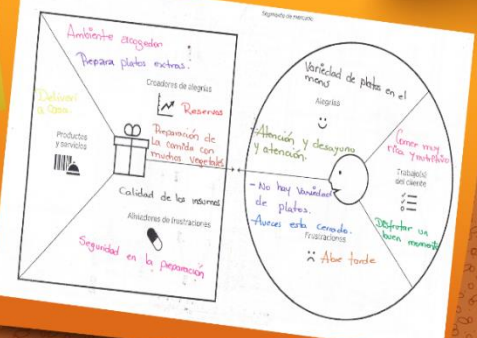 Segmento de mercado
Ambiente acogedor
Prepara platos extras.
Creadores de alegrías
Reservas
Deliveri
a casa.
Productos
y servicios
Preparación de
la comida con
muchos vegetales
Calidad de los insumos
Aliviadores de frustraciones
Seguridad en la preparación
Variedad de platos en el
menú
Alegrías
-Atención y desayuno
y atención.
Comer muy
rico y nutritivo
Trabajo(s)
del cliente
- No hay variedad
de platos.
-Aveces esta cerrado.
Disfrutar un
buen momento
Frustraciones
Abre tarde